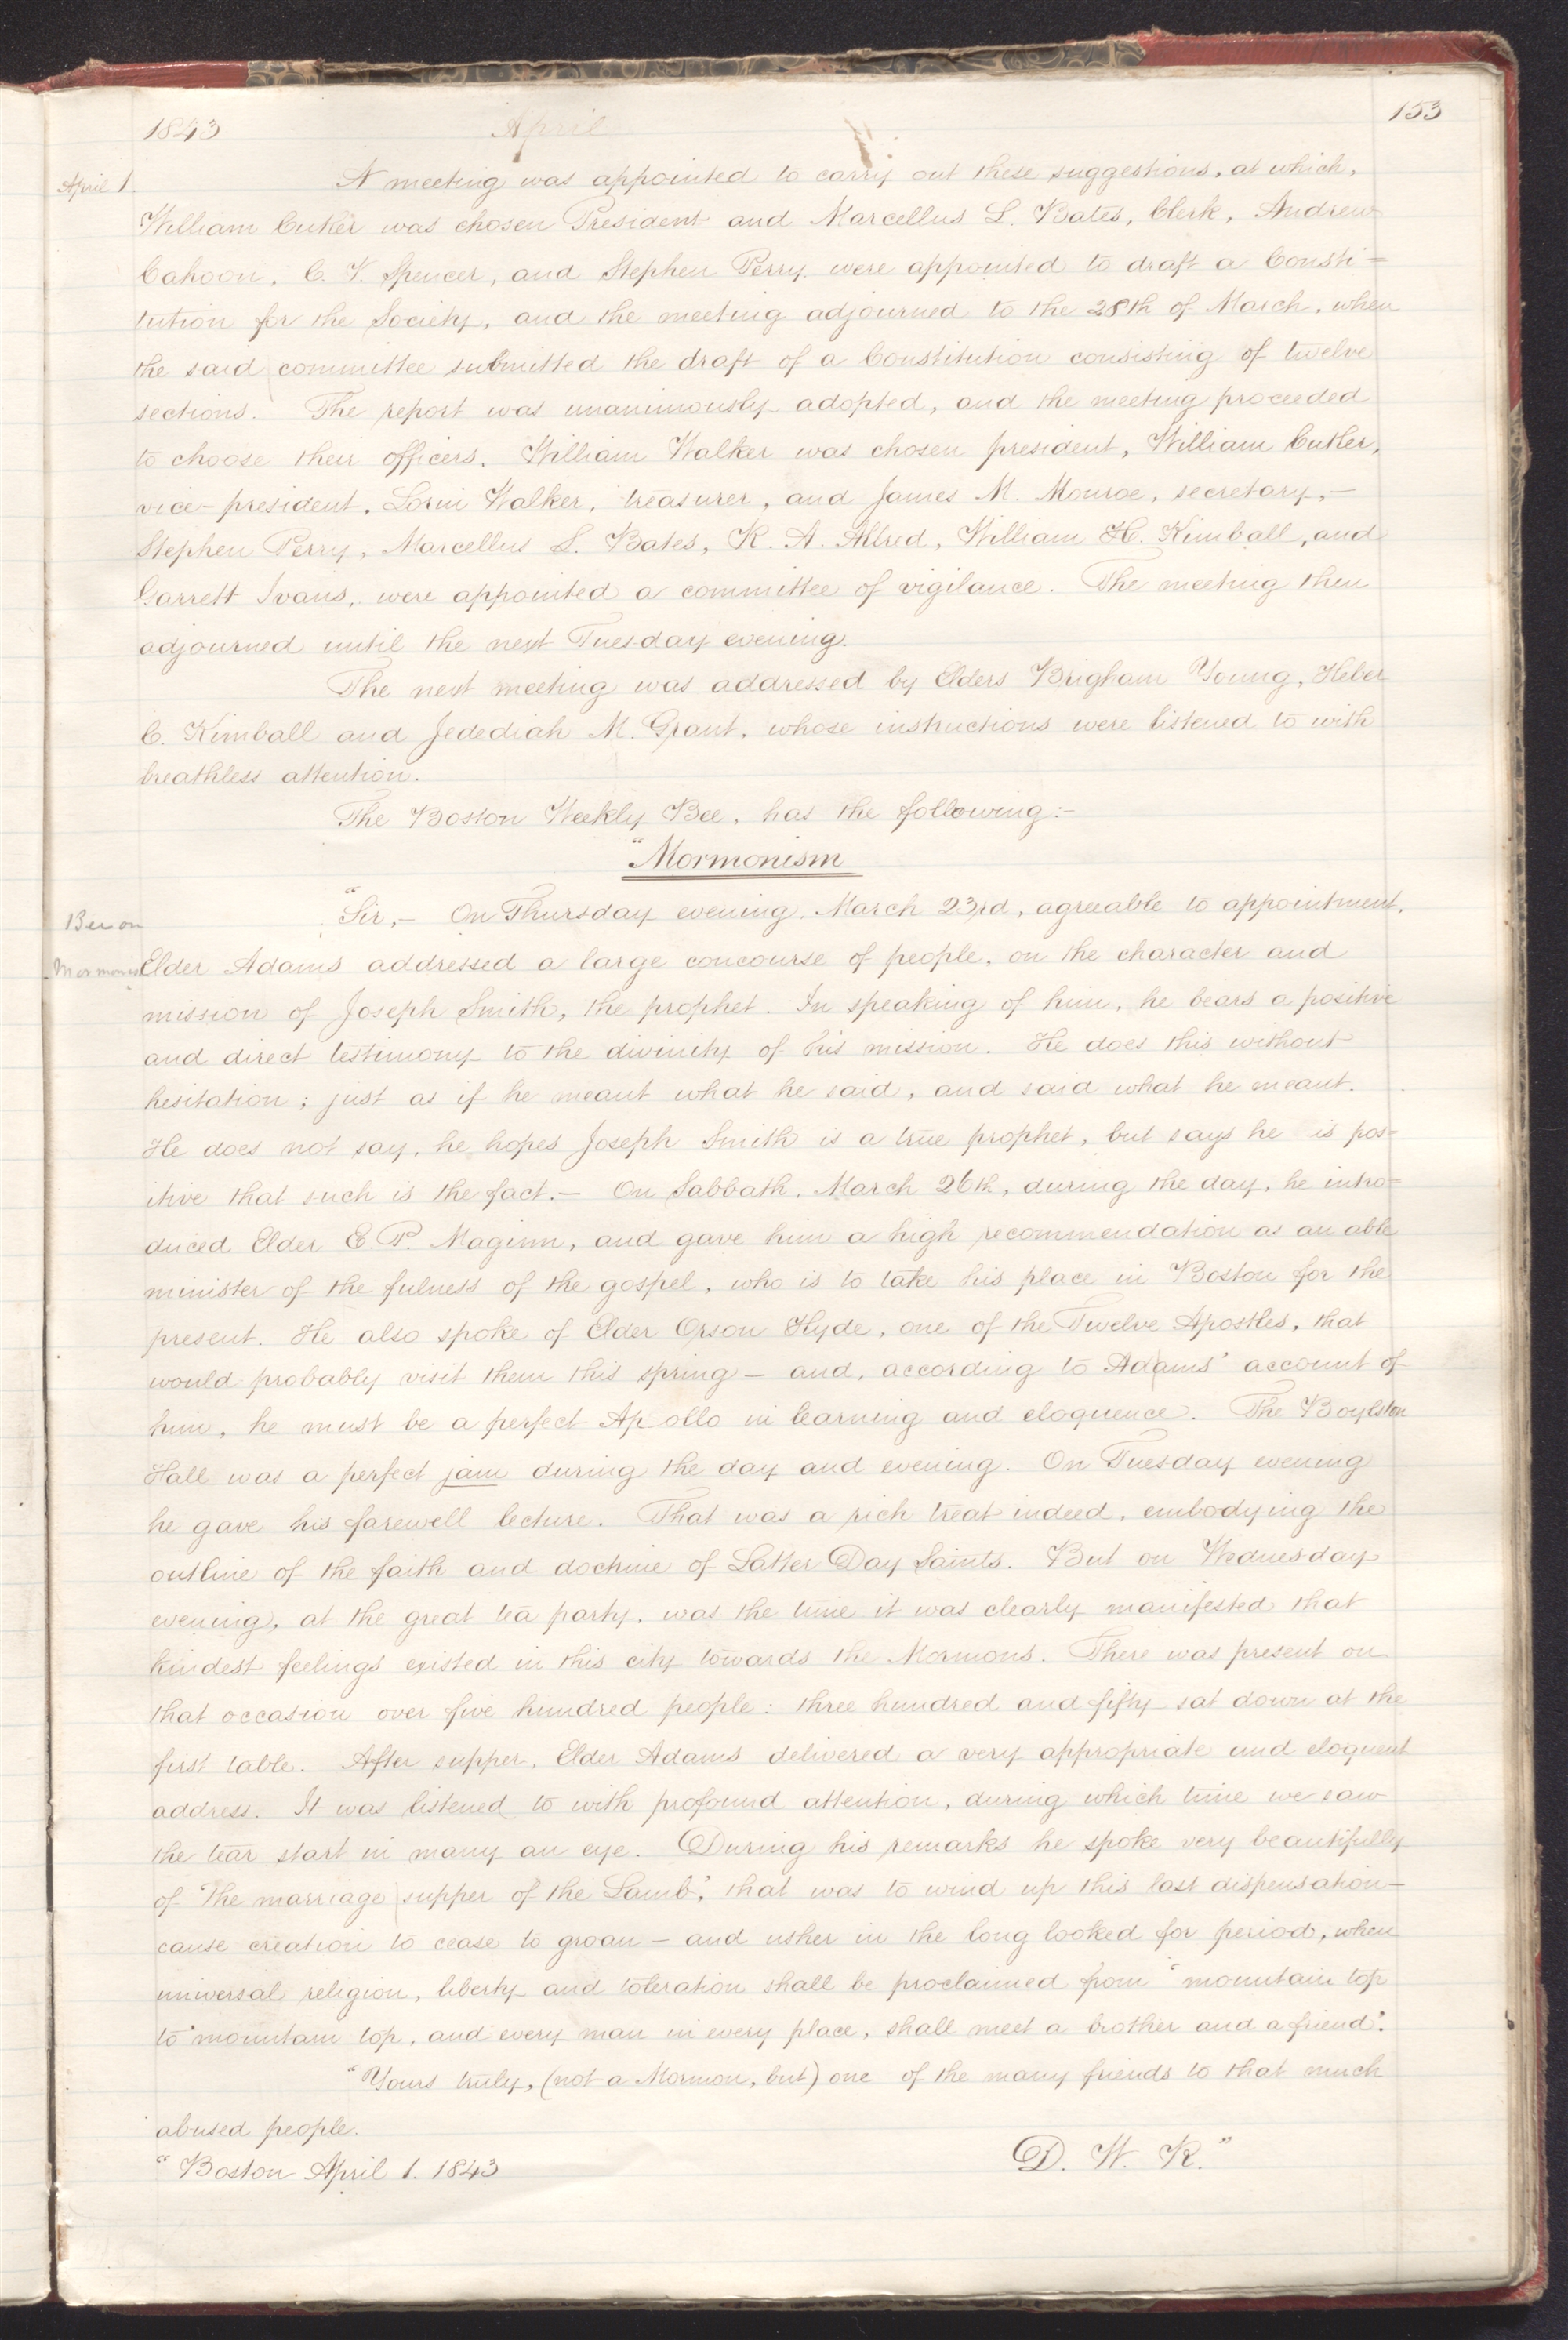 1843 April 153
April 1.
A meeting was appointed to carry out these suggestions, at which,
William Cutler was chosen President and Marcellus L. Bates, Clerk, Andrew
Cahoon, C. V. Spencer, and Stephen Perry were appointed to draft a Consti=
tution for the Society, and the meeting adjourned to the 28th of March, when
the said committee submitted the draft of a Constitution consisting of twelve
sections. The report was unanimously adopted, and the meeting proceeded
to choose their officers. William Walker was chosen president, William Cutler,
vice-president, Lorin Walker, treasurer, and James M. Monroe, secretary,—
Stephen Perry, Marcellus L. Bates, R. A. Allred, William H. Kimball, and
Garrett Ivans, were appointed a committee of vigilance. The meeting then
adjourned until the next Tuesday evening.
The next meeting was addressed by Elders Brigham Young, Heber
C. Kimball and Jedediah M. Grant, whose instructions were listened to with
breathless attention.
The Boston Weekly Bee, has the following:—
"Mormonism
"Sir,— On Thursday evening, March 23rd, agreeable to appointment,
Bee on
Mormonis
Elder Adams addressed a large concourse of people, on the character and
mission of Joseph Smith, the prophet. In speaking of him, he bears a positive
and direct testimony to the divinity of his mission. He does this without
hesitation; just as if he meant what he said, and said what he meant.
He does not say, he hopes Joseph Smith is a true prophet, but says he is pos=
itive that such is the fact.— On Sabbath, March 26th, during the day, he intro=
duced Elder E. P. Maginn, and gave him a high recommendation as an able
minister of the fulness of the gospel, who is to take his place in Boston for the
present. He also spoke of Elder Orson Hyde, one of the Twelve Apostles, that
would probably visit them this spring — and, according to Adams' account of
him, he must be a perfect Apollo in learning and eloquence. The Boylston
Hall was a perfect jam during the day and evening. On Tuesday evening
he gave his farewell lecture. That was a rich treat indeed, embodying the
outline of the faith and doctrine of Latter Day Saints. But on Wednesday
evening, at the great tea party, was the time it was clearly manifested that
kindest feelings existed in this city towards the Mormons. There was present on
that occasion over five hundred people: three hundred and fifty sat down at the
first table. After supper, Elder Adams delivered a very appropriate and eloquent
address. It was listened to with profound attention, during which time we saw
the tear start in many an eye. During his remarks he spoke very beautifully
of "the marriage supper of the Lamb", that was to wind up this last dispensation—
cause creation to cease to groan — and usher in the long looked for period, when
universal religion, liberty and toleration shall be proclaimed from "mountain top
to "mountain top, and every man in every place, shall meet a brother and a friend".
"Yours truly, (not a Mormon, but) one of the many friends to that much
abused people.
D. W. R."
"Boston April 1. 1843